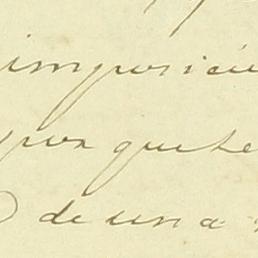 imposició
por que se
de una